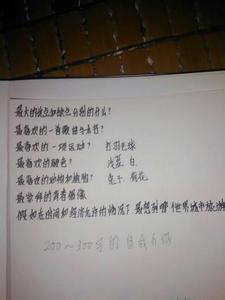 最大的优点和缺点分别是什么?
最喜欢的一首歌或一本书?
最喜欢的一项运动? 打羽毛球
最喜欢的颜色? 浅蓝、白
最喜欢的动物和植物? 兔子、荷花
最崇拜的青春偶像
假如在时间和经济允许的情况下最想到哪个世界城市旅游
200~300字的自我介绍